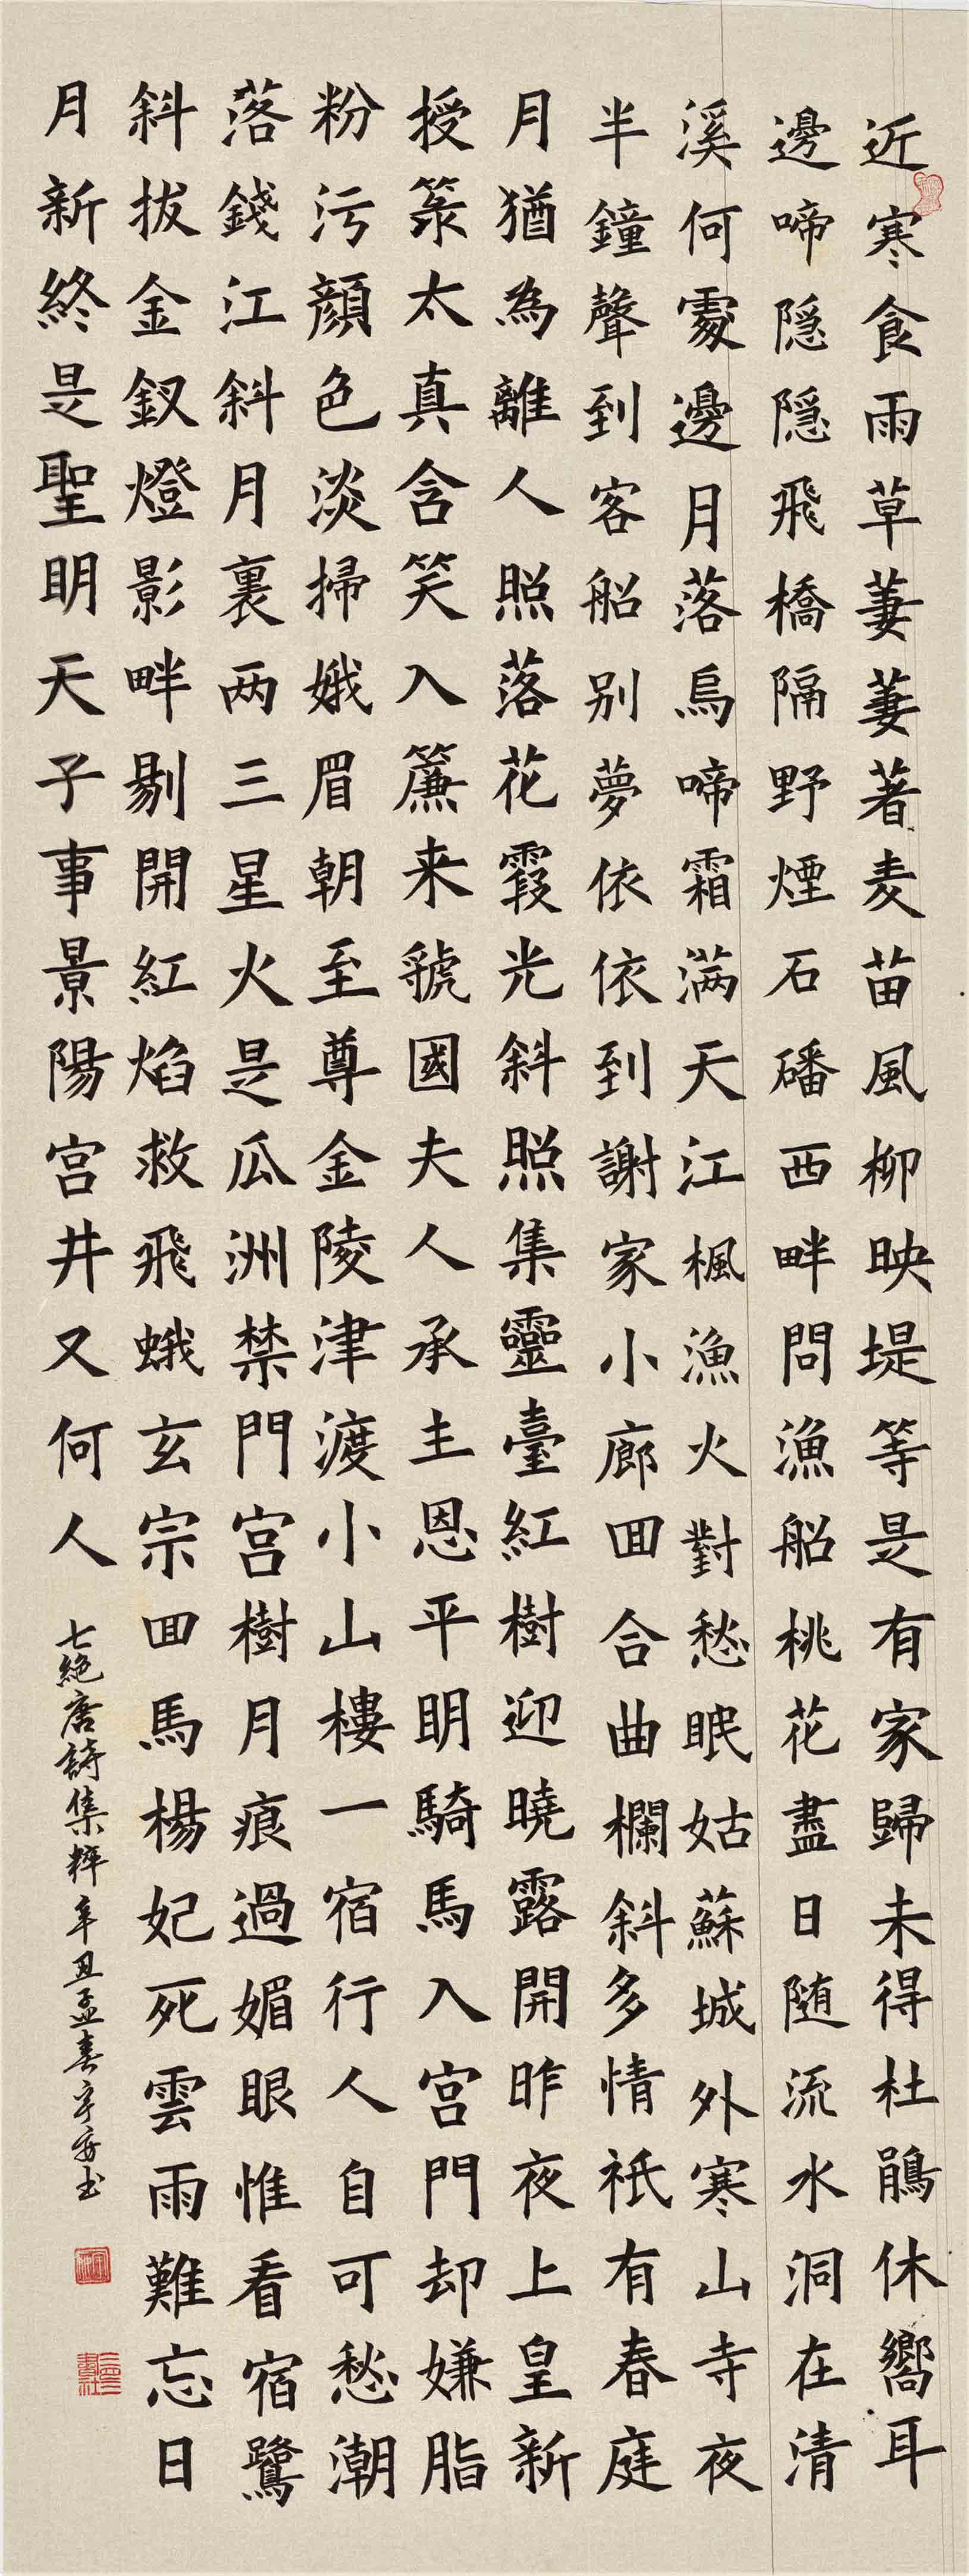 近寒食雨草萋萋著麦苗風柳映堤等是有家歸未得杜鵑休嚮耳
邊啼隠隠飛橋隔野煙石磻西畔問漁船桃花盡日随流水洞在清
溪何處邊月落烏啼霜满天江楓漁火對愁眠姑蘇城外寒山寺夜
半鐘聲到客船别夢依依到謝家小廊回合曲欄斜多情祇有春庭
月猶為離人照落花霞光斜照集靈臺紅樹迎曉露開昨夜上皇新
授箓太真含笑入簾来虢國夫人承主恩平明騎馬入宫門却嫌脂
粉污顔色淡掃娥眉朝至尊金陵津渡小山樓一宿行人自可愁潮
落錢江斜月裏两三星火是瓜洲禁門宫樹月痕過媚眼惟看宿鷺
斜拔金釵燈影畔剔開紅焰救飛蛾玄宗回馬楊妃死雲雨難忘日
月新終是聖明天子事景陽宫井又何人
七絶唐詩集粹辛丑孟春辛安书